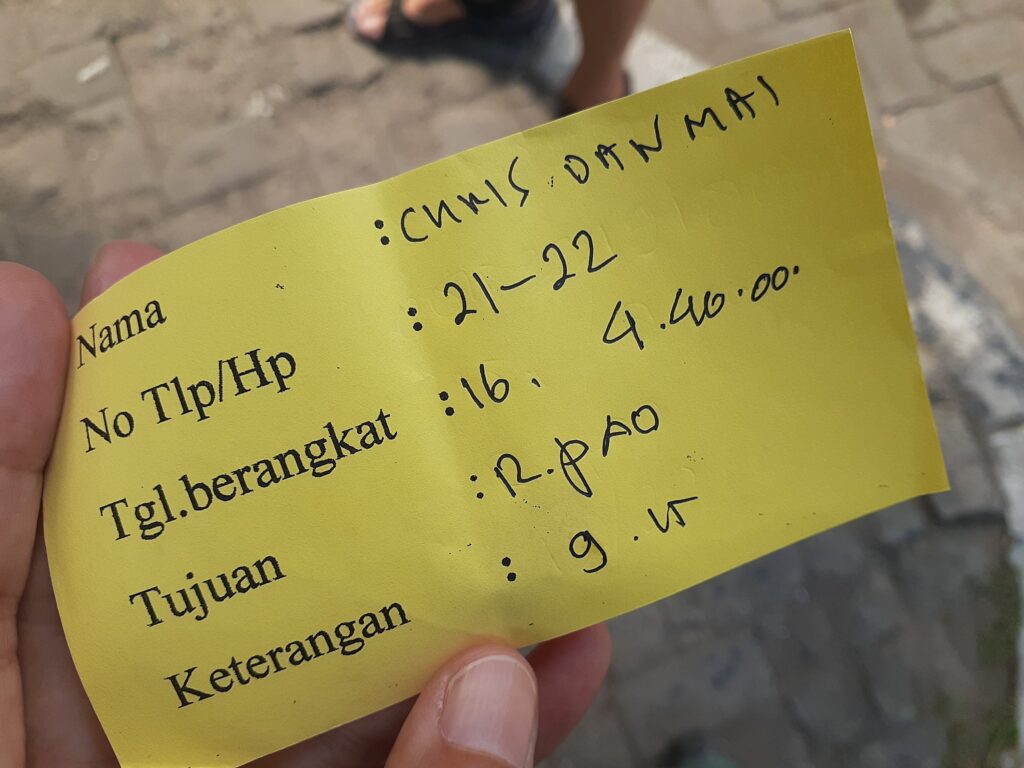 Nama : CHRIS. DAN MAI
No Tlp/Hp : 21-22
Tgl.berangkat : 16. 4.40.00.
Tujuan : R.PAO
Keterangan : 9.